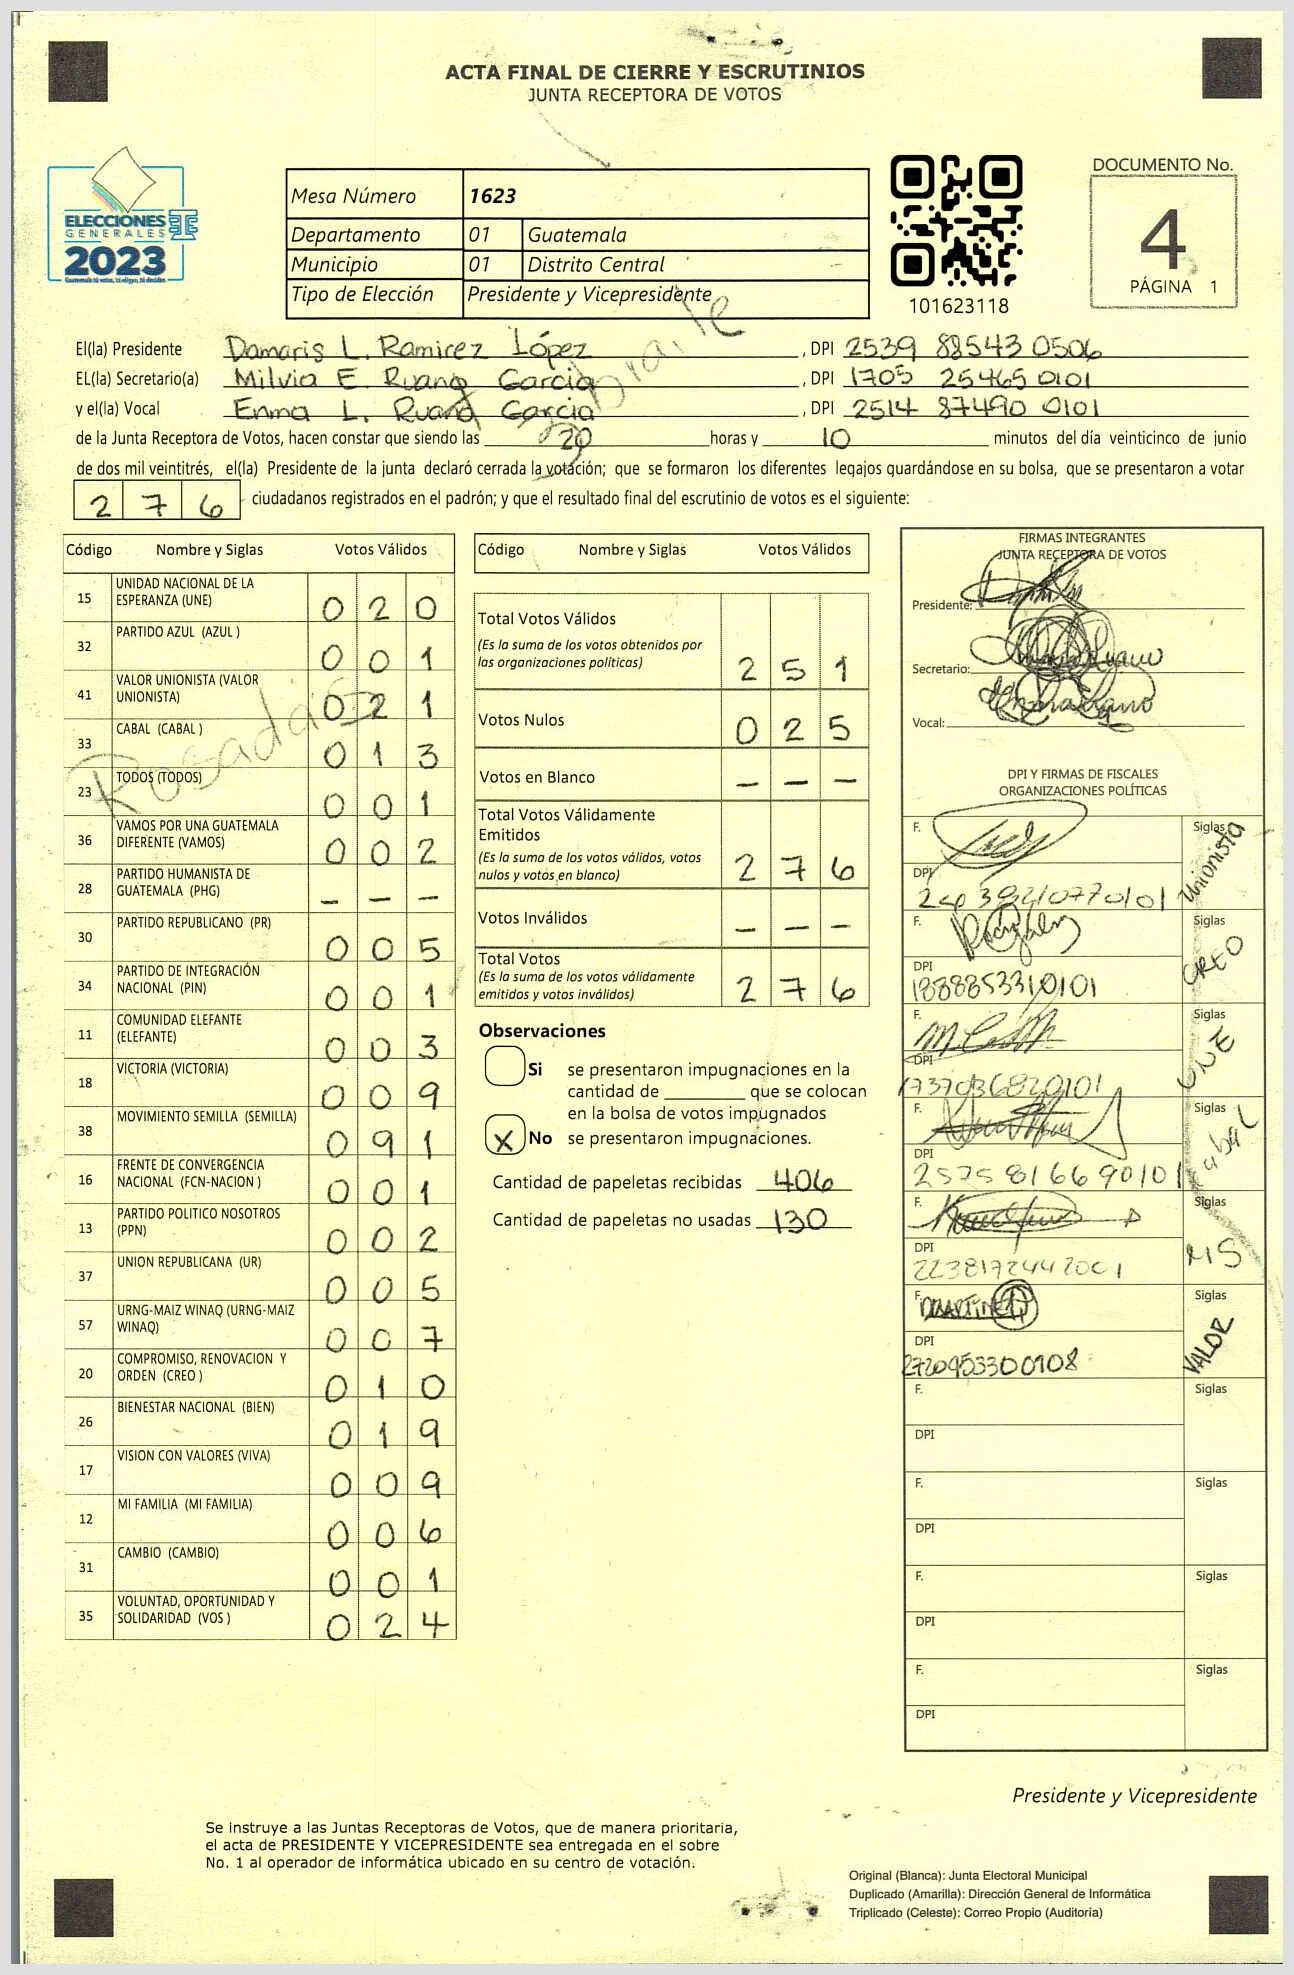 ACTA FINAL DE CIERRE Y ESCRUTINIOS
JUNTA RECEPTORA DE VOTOS
ELECCIONES
GENERALES
2023
Guatemala tú votas, tú eliges, tú decides
Mesa Número 1623
Departamento 01 Guatemala
Municipio 01 Distrito Central
Tipo de Elección Presidente y Vicepresidente
101623118
DOCUMENTO No.
4
PÁGINA 1
El(la) Presidente Damaris L. Ramirez López , DPI 2539 88543 0506
EL(la) Secretario(a) Milvia E. Ruano Garcia , DPI 1705 25465 0101
y el(la) Vocal Enma L. Ruano Garcia , DPI 2514 87490 0101
de la Junta Receptora de Votos, hacen constar que siendo las 20 horas y 10 minutos del día veinticinco de junio
de dos mil veintitrés, el(la) Presidente de la junta declaró cerrada la votación; que se formaron los diferentes legajos guardándose en su bolsa, que se presentaron a votar
276 ciudadanos registrados en el padrón; y que el resultado final del escrutinio de votos es el siguiente:
Código Nombre y Siglas Votos Válidos
15 UNIDAD NACIONAL DE LA ESPERANZA (UNE) 0 2 0
32 PARTIDO AZUL (AZUL ) 0 0 1
41 VALOR UNIONISTA (VALOR UNIONISTA) 0 2 1
33 CABAL (CABAL ) 0 1 3
23 TODOS (TODOS) 0 0 1
36 VAMOS POR UNA GUATEMALA DIFERENTE (VAMOS) 0 0 2
28 PARTIDO HUMANISTA DE GUATEMALA (PHG) – – –
30 PARTIDO REPUBLICANO (PR) 0 0 5
34 PARTIDO DE INTEGRACIÓN NACIONAL (PIN) 0 0 1
11 COMUNIDAD ELEFANTE (ELEFANTE) 0 0 3
18 VICTORIA (VICTORIA) 0 0 9
38 MOVIMIENTO SEMILLA (SEMILLA) 0 9 1
16 FRENTE DE CONVERGENCIA NACIONAL (FCN-NACION ) 0 0 1
13 PARTIDO POLITICO NOSOTROS (PPN) 0 0 2
37 UNION REPUBLICANA (UR) 0 0 5
57 URNG-MAIZ WINAQ (URNG-MAIZ WINAQ) 0 0 7
20 COMPROMISO, RENOVACION Y ORDEN (CREO ) 0 1 0
26 BIENESTAR NACIONAL (BIEN) 0 1 9
17 VISION CON VALORES (VIVA) 0 0 9
12 MI FAMILIA (MI FAMILIA) 0 0 6
31 CAMBIO (CAMBIO) 0 0 1
35 VOLUNTAD, OPORTUNIDAD Y SOLIDARIDAD (VOS ) 0 2 4
Código Nombre y Siglas Votos Válidos
Total Votos Válidos 2 5 1
(Es la suma de los votos obtenidos por
las organizaciones políticas)
Votos Nulos 0 2 5
Votos en Blanco – – –
Total Votos Válidamente
Emitidos 2 7 6
(Es la suma de los votos válidos, votos
nulos y votos en blanco)
Votos Inválidos – – –
Total Votos 2 7 6
(Es la suma de los votos válidamente
emitidos y votos inválidos)
Observaciones
Si se presentaron impugnaciones en la
cantidad de ________ que se colocan
en la bolsa de votos impugnados
X No se presentaron impugnaciones.
Cantidad de papeletas recibidas 406
Cantidad de papeletas no usadas 130
FIRMAS INTEGRANTES
JUNTA RECEPTORA DE VOTOS
Presidente:
Secretario:
Vocal:
DPI Y FIRMAS DE FISCALES
ORGANIZACIONES POLÍTICAS
F. Siglas Unionista
DPI
F. Siglas CREO
DPI 1888853310101
F. Siglas UNE
DPI 1737036820101
F. Siglas Cabal
DPI 2575816690101
F. Siglas MS
DPI 2238172442001
F. Siglas VALOR
DPI 2720953300108
F. Siglas
DPI
F. Siglas
DPI
F. Siglas
DPI
F. Siglas
DPI
Presidente y Vicepresidente
Se instruye a las Juntas Receptoras de Votos, que de manera prioritaria,
el acta de PRESIDENTE Y VICEPRESIDENTE sea entregada en el sobre
No. 1 al operador de informática ubicado en su centro de votación.
Original (Blanca): Junta Electoral Municipal
Duplicado (Amarilla): Dirección General de Informática
Triplicado (Celeste): Correo Propio (Auditoría)